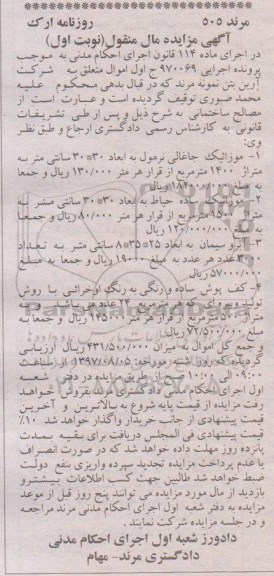 مرند ۵۰۵ روزنامه ارک
آگهی مزایده مال منقول(نوبت اول)
در اجرای ماده ۱۱۴ قانون اجرای احکام مدنی به موجب
پرونده اجرایی ۹۷۰۰۶۹ ح اول اموال متعلق به شرکت
آرین بتن نمونه مرند که در قبال بدهی محکوم علیه
محمد صبوری توقیف گردیده است و عبارت است از
مصالح ساختمانی به شرح ذیل و پس از طی تشریفات
قانونی به کارشناس رسمی دادگستری ارجاع و طبق نظر
وی:
۱- موزائیک جاغالی نرمول به ابعاد ۳۰*۳۰ سانتی متر به
متراژ ۱۴۰۰ مترمربع از قرار هر متر ۱۳۰/۰۰۰ ریال و جمعا
به مبلغ ریال
ساده حیاط به ابعاد ۳۰*۳۰ سانتی متر به
متراژ مترمربع از قرار هر متر ۸۰/۰۰۰ ریال و جمعا
۱۲۰/۰۰۰/۰۰۰ ریال
۳- سیمان به ابعاد ۲۵*۳۵*۸ سانتی متر به تعداد
عدد هر عدد به مبلغ ۱۹۰۰۰ ریال و جمعا به مبلغ
۵۷/۰۰۰/۰۰۰ ریال
۴- کف پوش ساده و رنگی به رنگ اخرائی با روش
تولید که هر مترمربع ۲۴ عدد
متراژ ریال و جمعا به
مبلغ ۷۲/۵۰۰/۰۰۰ ریال
و جمع کل اموال به میزان ۴۳۱/۵۰۰/۰۰۰ ریال ارزیابی
گردیده که روز شنبه مورخه: ۱۳۹۷/۰۸/۰۵ از ساعت
۰۹:۰۰ الی ۱۰:۰۰ صبح از طریق مزایده در دفتر شعبه
اول اجرای احکام مدنی دادگستری مرند بفروش خواهد
رفت مزایده از قیمت پایه شروع به بالاترین و آخرین
قیمت پیشنهادی از جانب خریدار واگذار خواهد شد ۱۰٪
قیمت پیشنهادی فی المجلس دریافت برای بقیه بمدت
پانزده روز مهلت داده خواهد شد که در صورت انصراف
یا عدم پرداخت مزایده تجدید سپرده واریزی بنفع دولت
ضبط خواهد شد طالبین جهت کسب اطلاعات بیشترو
بازدید از مال مورد مزایده می توانند پنج روز قبل از موعد
مزایده به دفتر شعبه اول اجرای احکام مدنی مرند مراجعه
و در جلسه مزایده شرکت نمایند .
دادورز شعبه اول اجرای احکام مدنی
دادگستری مرند- مهام